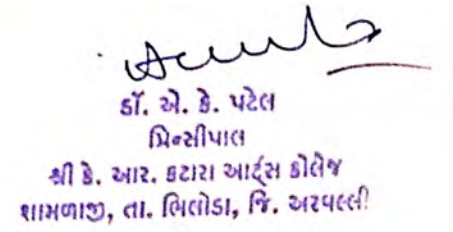 ડૉ. એ. કે. પટેલ
પ્રિન્સીપાલ
શ્રી કે. આર. કટારા આર્ટ્સ કૉલેજ
શામળાજી, તા. ભિલોડા, જિ. અરવલ્લી